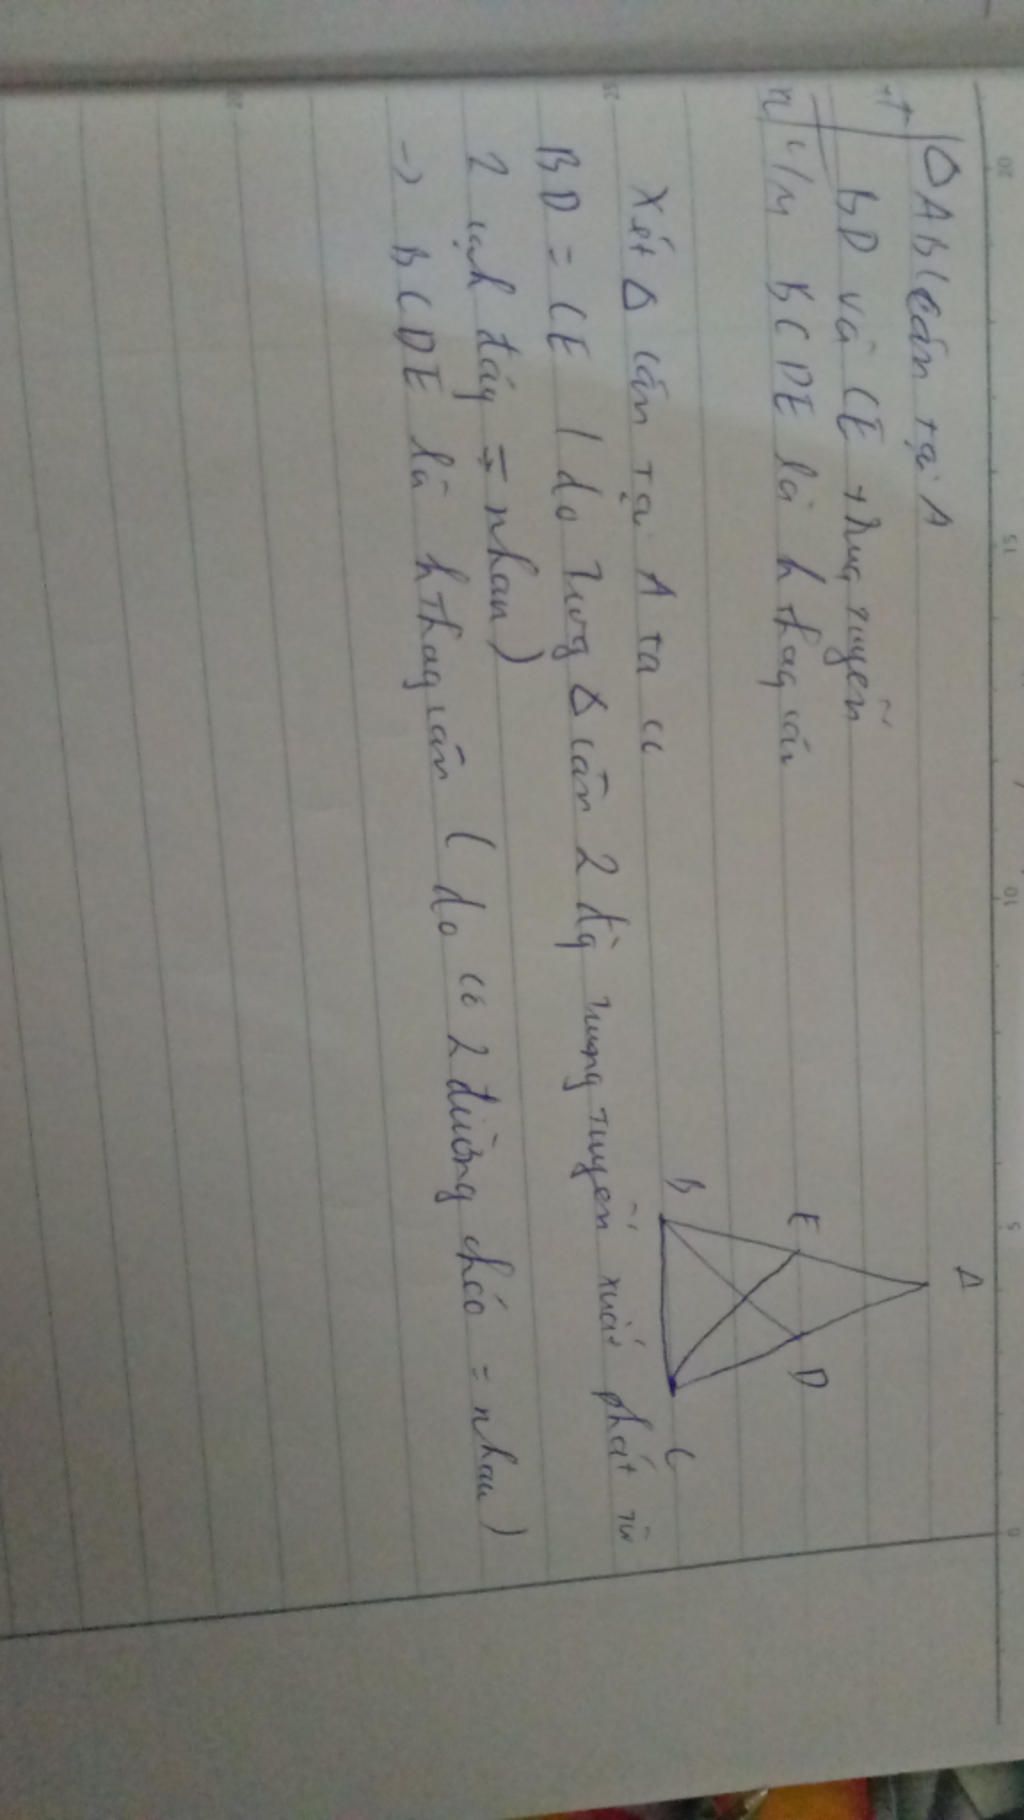 gt | ΔABC cân tại A
BD và CE trung tuyến
c/m BCDE là h thag cân
A
E
D
B
C
Xét Δ cân tại A ta có
BD = CE ( do trong Δ cân 2 đg trung tuyến xuất phát từ
2 cạh đáy = nhau)
-> BCDE là hthag cân ( do có 2 đường chéo = nhau)
20
15
10
5
0